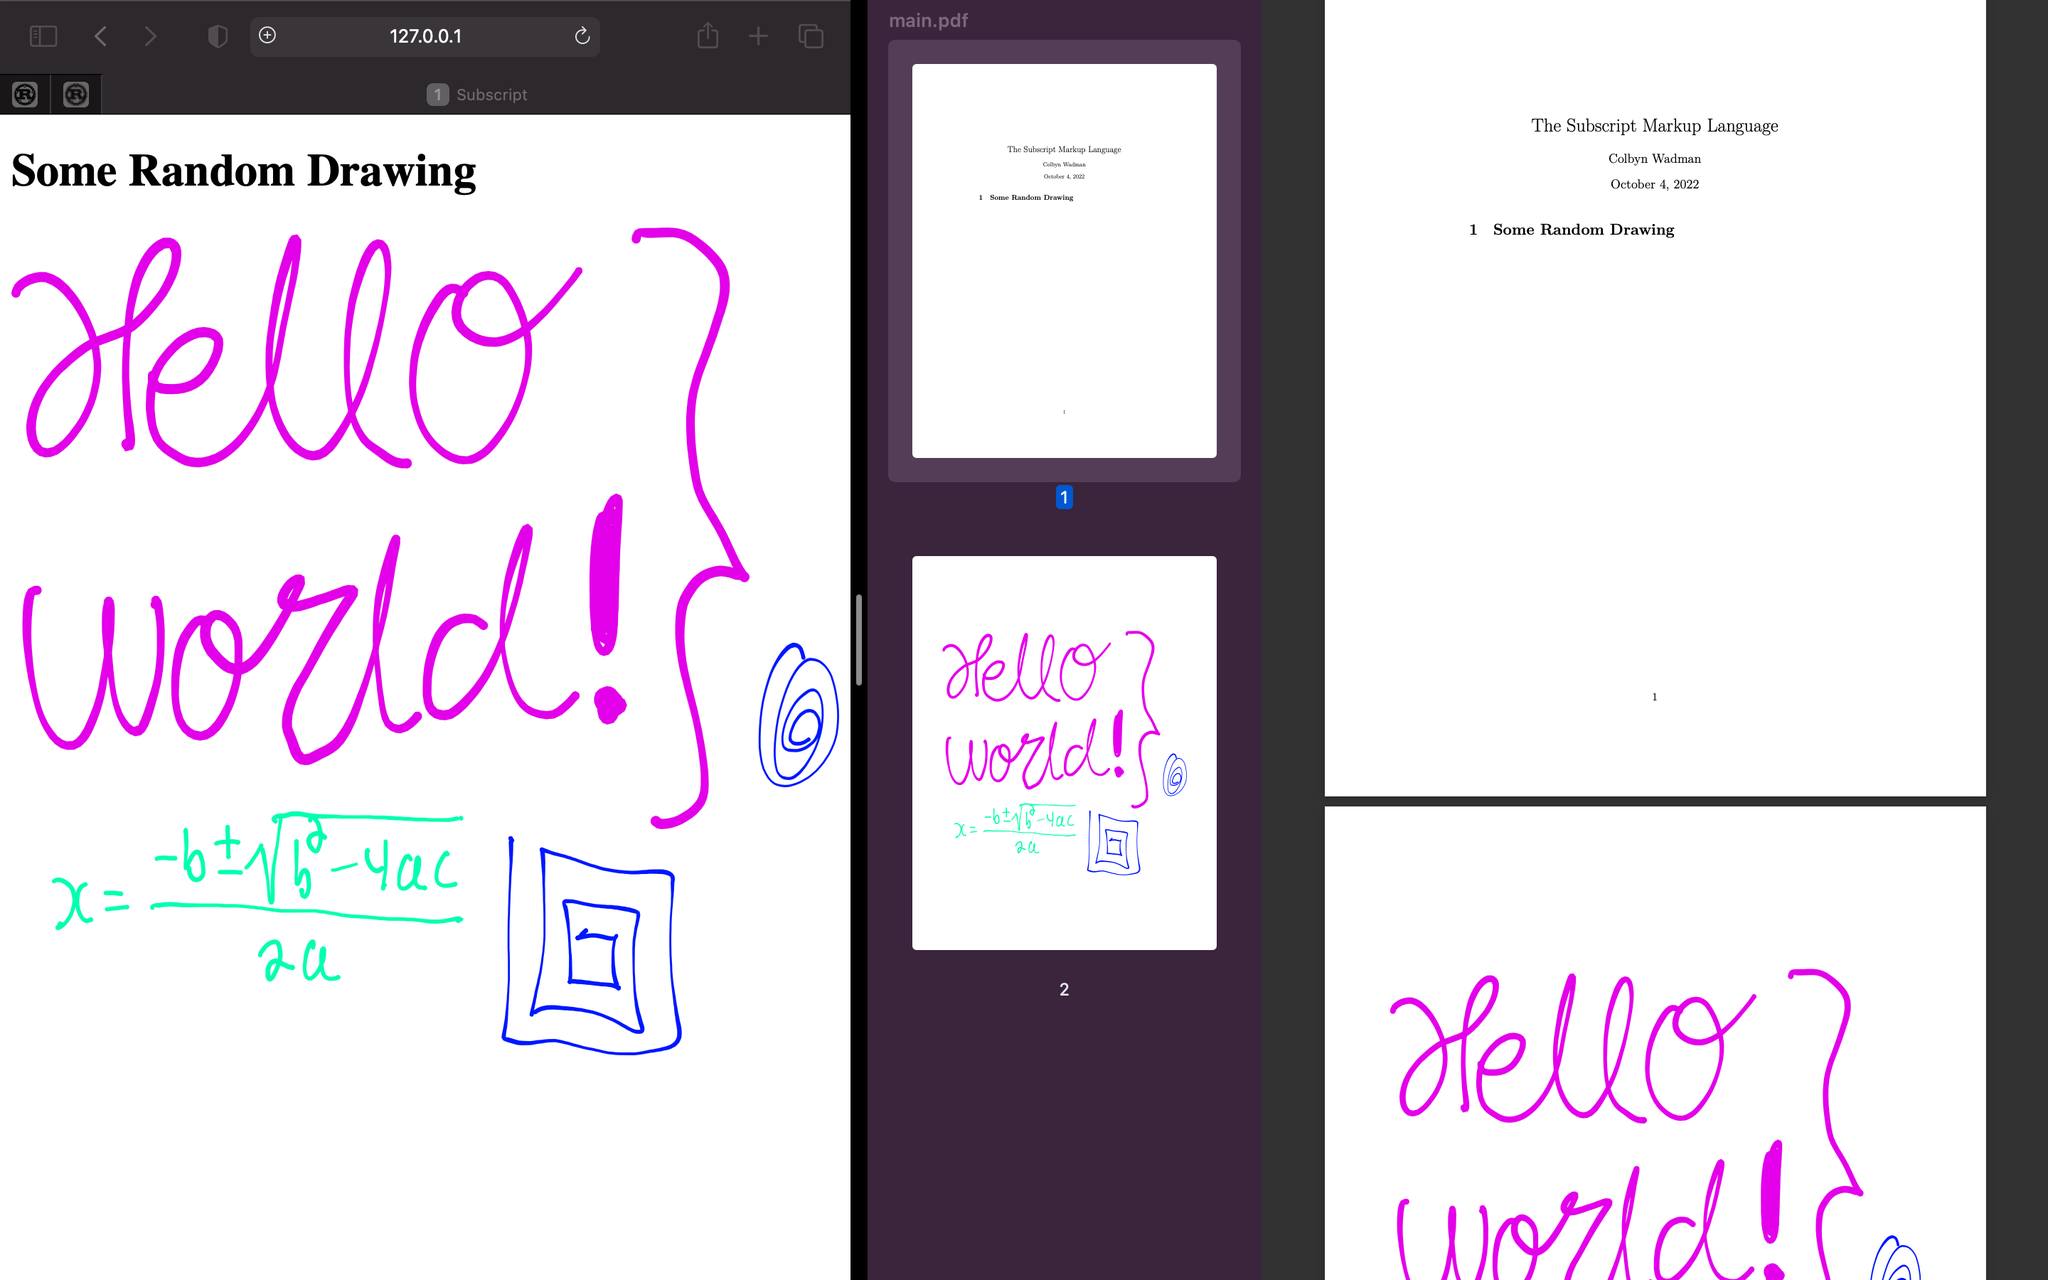 127.0.0.1
1 Subscript
Some Random Drawing
Hello
World!
x = -b ± √b² - 4ac
2a
main.pdf
The Subscript Markup Language
Colbyn Wadman
October 4, 2022
1 Some Random Drawing
1
1
Hello
World!
x = -b ± √b² - 4ac
2a
2
The Subscript Markup Language
Colbyn Wadman
October 4, 2022
1 Some Random Drawing
1
Hello
World!